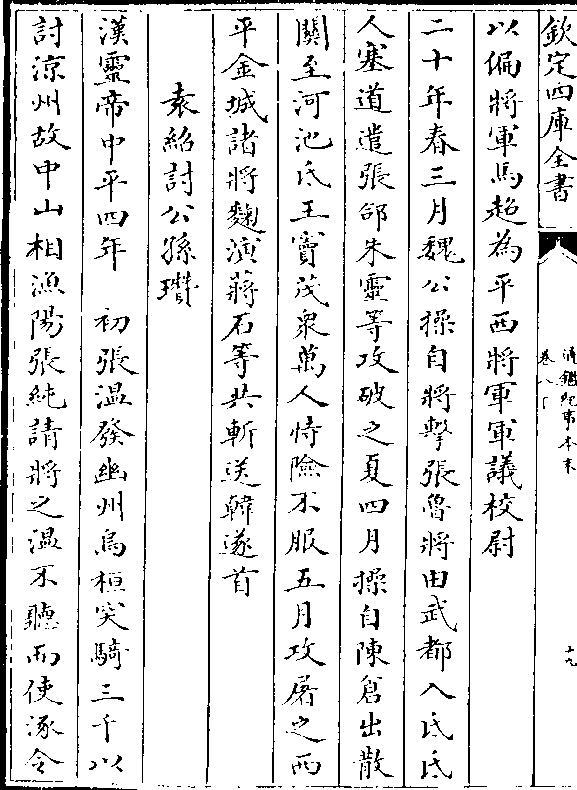 欽定四庫全書
通鑑紀事本末
卷八下
十九
以偏將軍馬超為平西將軍軍議校尉
二十年春三月魏公操自將擊張魯將由武都入氐氐
人塞道遣張郃朱靈等攻破之夏四月操自陳倉出散
關至河池氐王竇茂衆萬人恃險不服五月攻屠之西
平金城諸將麴演蔣石等共斬送韓遂首
袁紹討公孫瓚
漢靈帝中平四年 初張溫發幽州烏桓突騎三千以
討涼州故中山相漁陽張純請將之溫不聽而使涿令